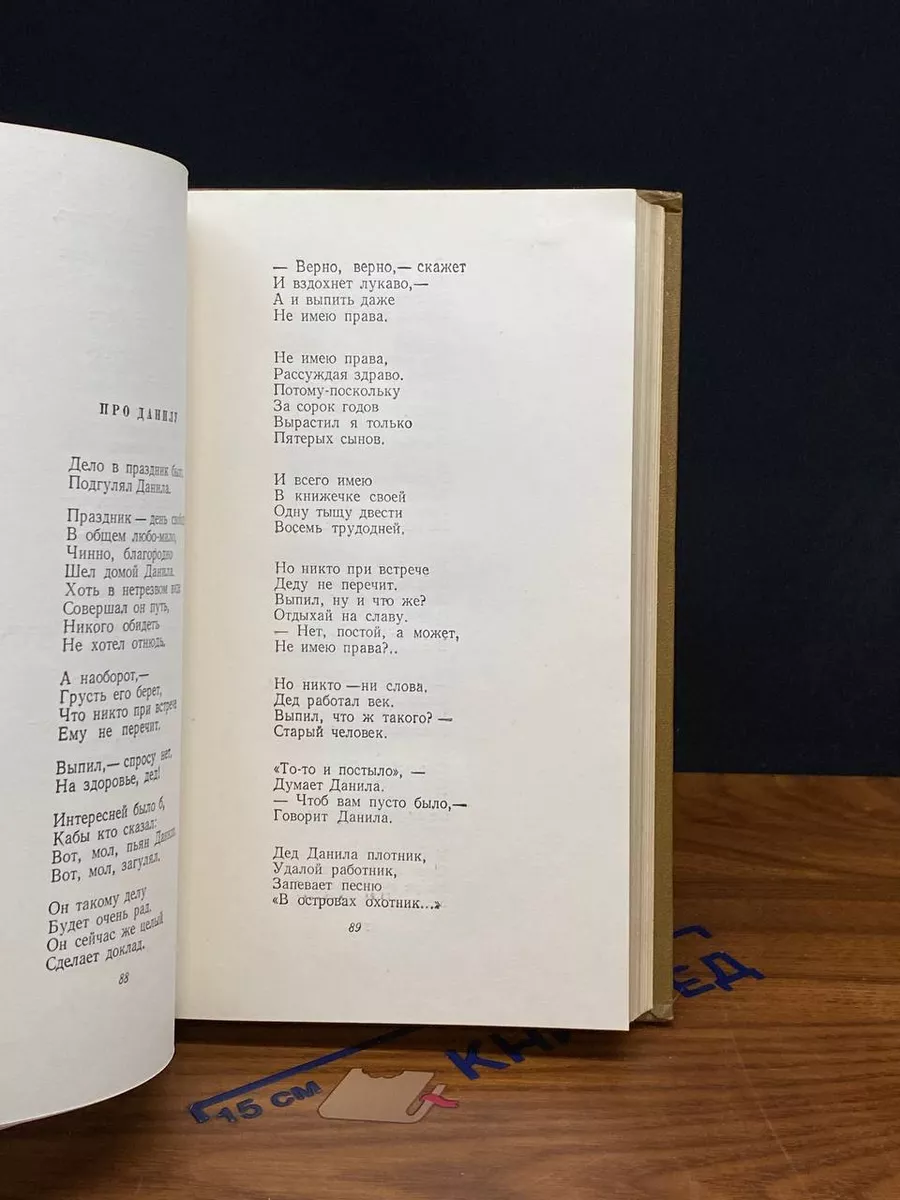 ПРО ДАНИЛУ
Дело в праздник было,
Подгулял Данила.
Праздник — день
В общем любо-мило,
Чинно, благородно
Шел домой Данила.
Хоть в нетрезвом виде
Совершал он путь,
Никого обидеть
Не хотел отнюдь.
А наоборот,—
Грусть его берет,
Что никто при встрече
Ему не перечит.
Выпил,— спросу нет,
На здоровье, дед!
Интересней было б,
Кабы кто сказал:
Вот, мол, пьян Данила,
Вот, мол, загулял.
Он такому делу
Будет очень рад,
Он сейчас же целый
Сделает доклад.
88
— Верно, верно,— скажет
И вздохнет лукаво,—
А и выпить даже
Не имею права.
Не имею права,
Рассуждая здраво.
Потому-поскольку
За сорок годов
Вырастил я только
Пятерых сынов.
И всего имею
В книжечке своей
Одну тыщу двести
Восемь трудодней.
Но никто при встрече
Деду не перечит.
Выпил, ну и что же?
Отдыхай на славу.
— Нет, постой, а может,
Не имею права?..
Но никто —ни слова,
Дед работал век.
Выпил, что ж такого? —
Старый человек.
«То-то и постыло», —
Думает Данила.
— Чтоб вам пусто было,—
Говорит Данила.
Дед Данила плотник,
Удалой работник,
Запевает песню
«В островах охотник...»
89
15 СМ